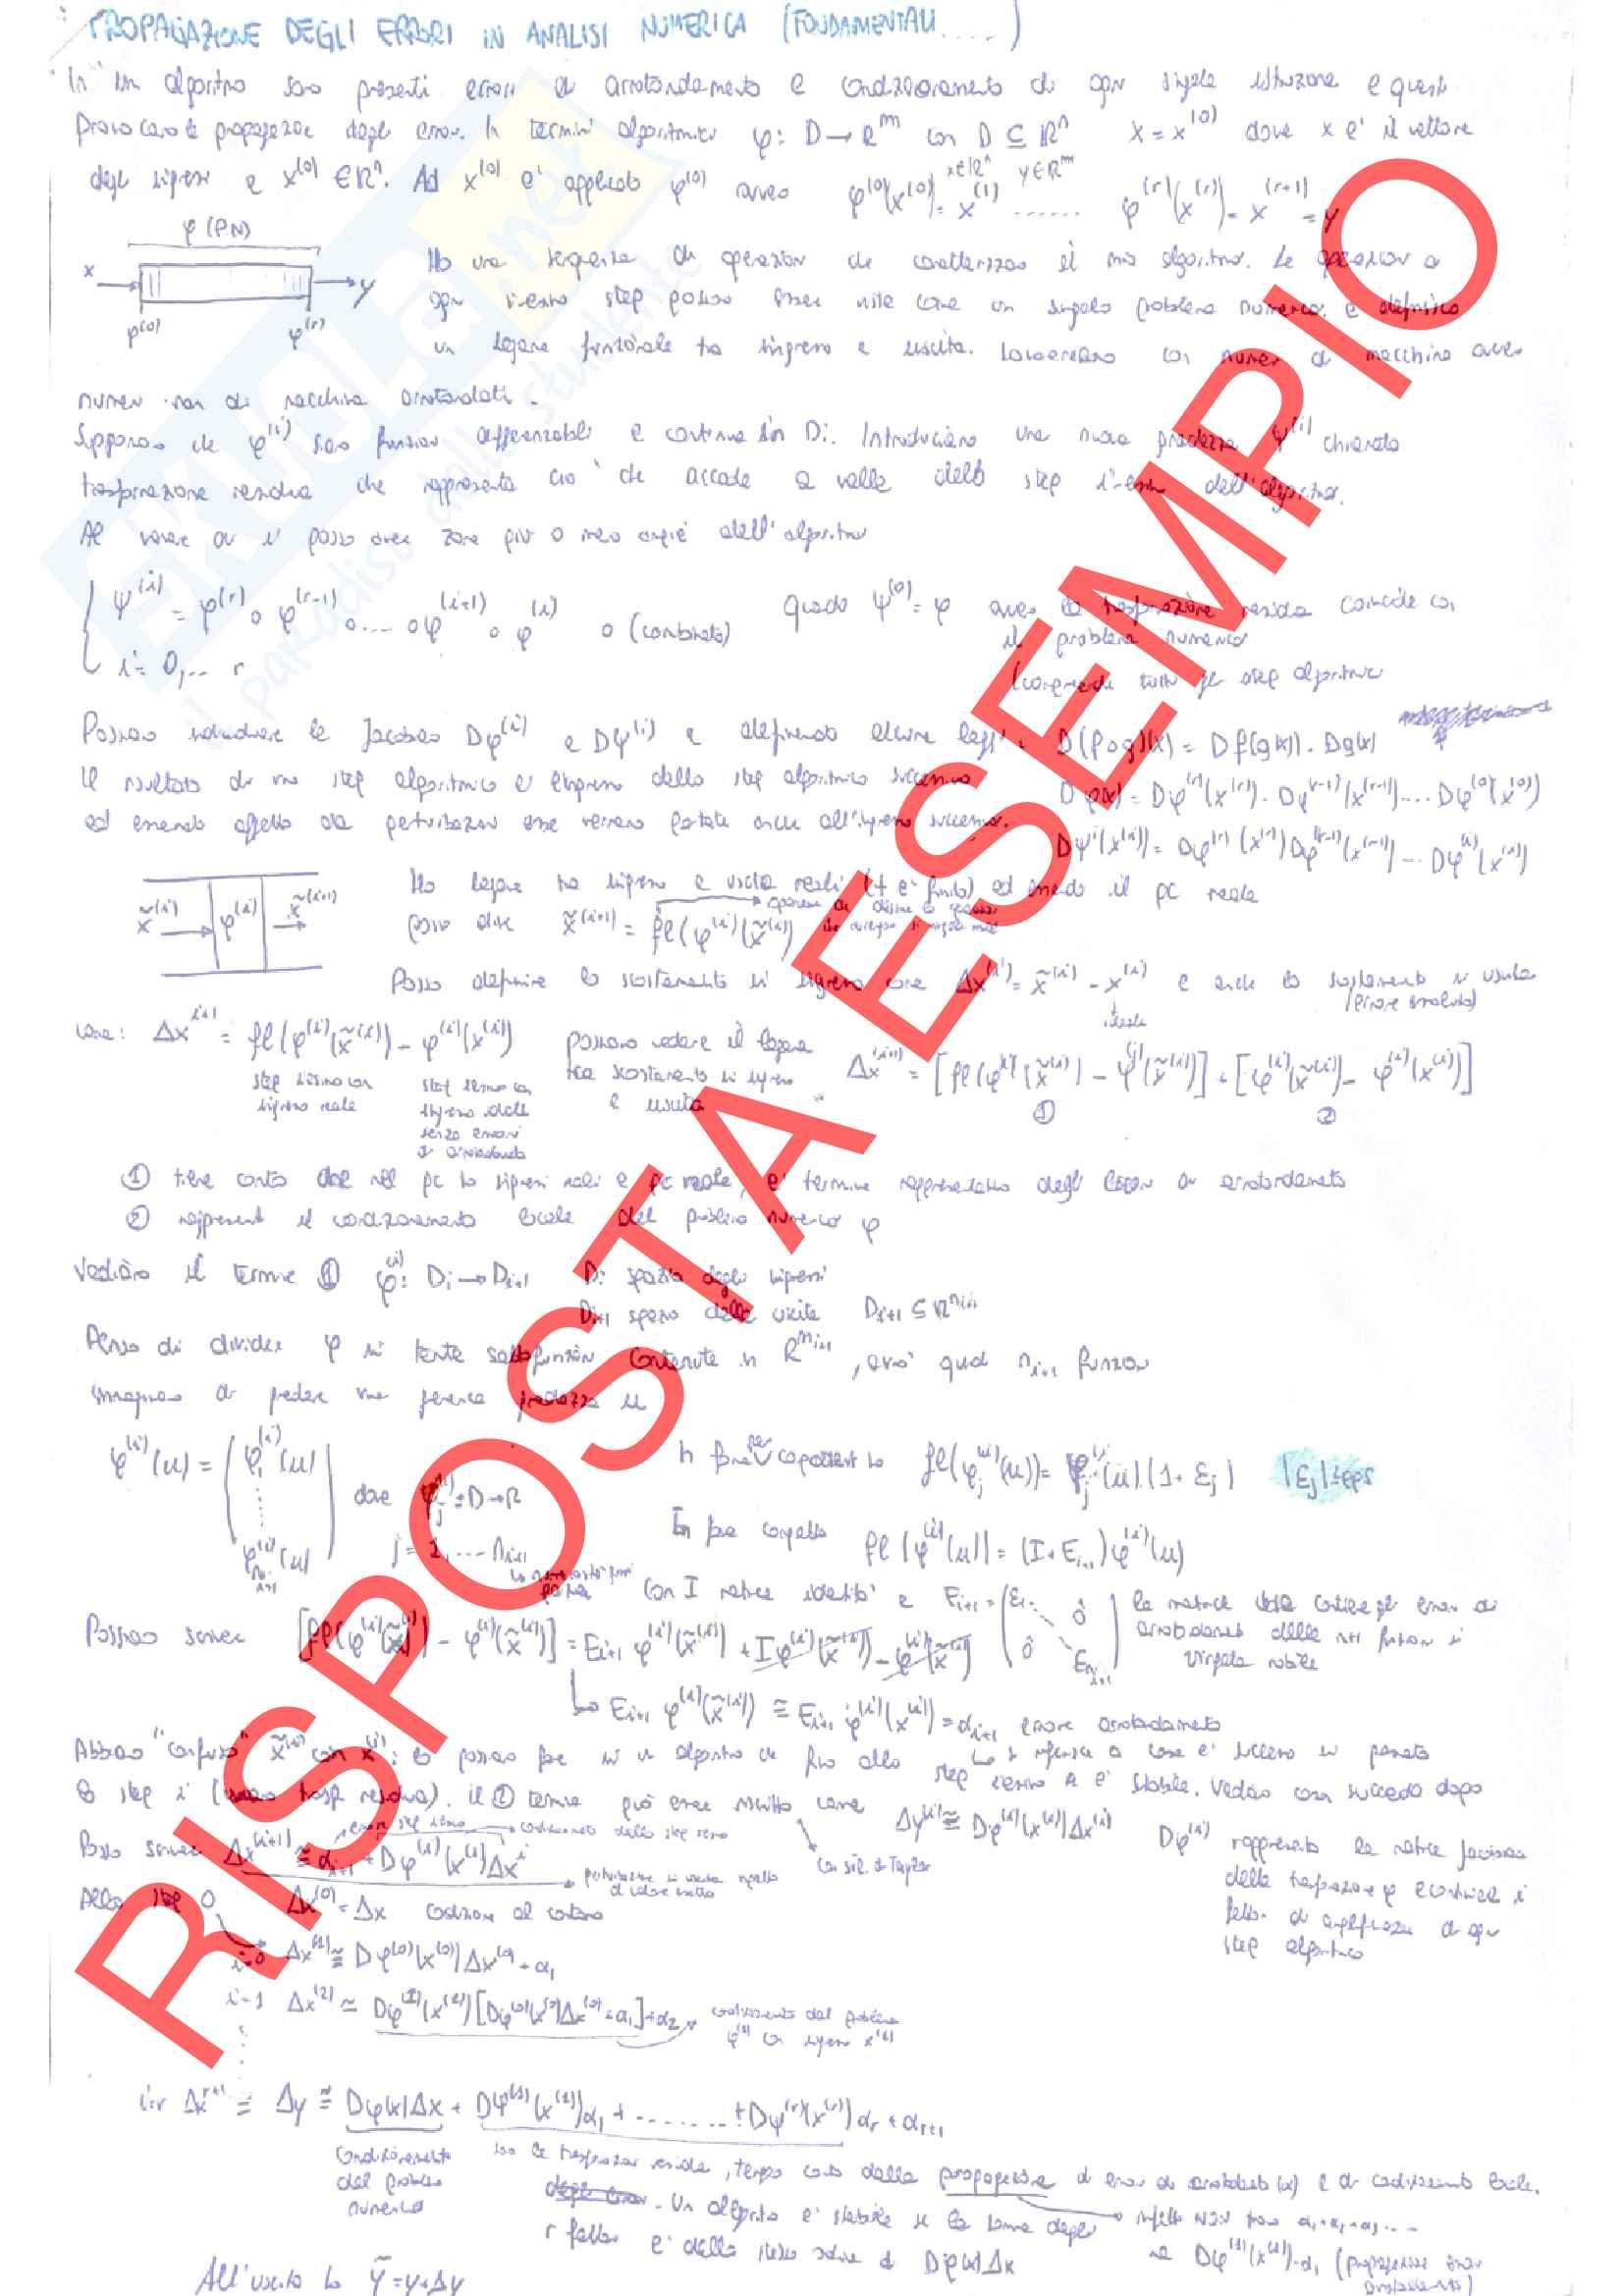 PROPAGAZIONE DEGLI ERRORI IN ANALISI NUMERICA (FONDAMENTALI ....)
In un algoritmo sono presenti errori di arrotondamento e condizionamento di ogni singola istruzione e questi
provocano la propagazione degli errori. In termini algoritmici φ: D → R^m con D ⊆ R^n x = x^(0) dove x e' il vettore
degli ingressi e x^(0) ∈ R^n. Ad x^(0) e' applicato φ^(0) avremo φ^(0)(x^(0)) = x^(1) ...... φ^(r)(x^(r)) = x^(r+1) = y
x∈R^n y∈R^m
φ (PN)
x
y
φ^(r)
Ho una sequenza di operazioni che caratterizzano il mio algoritmo. Le operazioni a
ogni step possono essere viste come un singolo problema numerico e definisco
un legame funzionale tra ingresso e uscita. con numeri di macchina avrei
numeri non di macchina arrotondati.
Supponiamo che φ^(i) siano funzioni differenziabili e continue in Di. Introduciamo una nuova grandezza ψ^(i) chiamata
trasformazione residua che rappresenta cio' che accade a valle dello step i-esimo dell'algoritmo.
Al variare di i posso avere zone più o meno ampie dell'algoritmo
ψ^(i) = φ^(r) o φ^(r-1) o .... o φ^(i+1) o φ^(i) o (combinato) quando ψ^(0) = φ avremo la trasformazione residua coincide con
il problema numerico
i = 0,... r
(comprende tutti gli step algoritmici
Possiamo individuare le Jacobiane Dφ^(i) e Dψ^(i) e definendo alcune leggi: D(f o g)(x) = Df(g(x)) · Dg(x)
Il risultato di uno step algoritmico e' l'ingresso dello step algoritmico successivo
Dφ(x) = Dφ^(r)(x^(r)) · Dφ^(r-1)(x^(r-1)) .... Dφ^(0)(x^(0))
ed essendo affetto da perturbazioni esse verranno portate anche all'ingresso successivo.
Dψ^i(x^(i)) = Dφ^(r)(x^(r)) Dφ^(r-1)(x^(r-1)) ... Dφ^(i)(x^(i))
x̃^(i) φ^(i) x̃^(i+1)
Ho legame tra ingresso e uscita reali (t e' finito) ed essendo il pc reale
posso dire x̃^(i+1) = fl(φ^(i)(x̃^(i)))
Posso definire lo scostamento in ingresso come Δx^(i) = x̃^(i) - x^(i) e anche lo scostamento in uscita
(errore assoluto)
ideale
come: Δx^(i+1) = fl(φ^(i)(x̃^(i))) - φ^(i)(x^(i))
possiamo vedere il legame
tra scostamento in ingresso
e uscita
Δx^(i+1) = [fl(φ^(i)(x̃^(i))) - φ^(i)(x̃^(i))] + [φ^(i)(x̃^(i)) - φ^(i)(x^(i))]
① ②
step i-esimo con
ingresso reale
step i-esimo con
ingresso ideale
senza errori
di arrotondamento
① tiene conto che nel pc ho ingressi reali e pc reale, e' termine rappresentativo degli errori di arrotondamento
② rappresenta il condizionamento locale del problema numerico φ
Vediamo il termine ① φ^(i): Di → Di+1 Di spazio degli ingressi
Di+1 spazio delle uscite Di+1 ⊆ R^ni+1
Penso di dividere φ in tante sottofunzioni contenute in R^ni+1, avrò quindi ni+1 funzioni
immaginiamo di prendere una generica grandezza u
φ^(i)(u) = ( φ1^(i)(u) ..... φni+1^(i)(u) ) dove φj^(i): D → R
j = 1, .... ni+1
In forma per componenti ho fl(φj^(i)(u)) = φj^(i)(u) (1 + εj) |εj| ≤ eps
In forma compatta fl(φ^(i)(u)) = (I + Ei+1) φ^(i)(u)
con I matrice identità e Ei+1 = ( ε1 0 0 εni+1 ) la matrice che contiene gli errori di
arrotondamento delle funzioni in
virgola mobile
Possiamo scrivere [fl(φ^(i)(x̃^(i))) - φ^(i)(x̃^(i))] = Ei+1 φ^(i)(x̃^(i)) + I φ^(i)(x̃^(i)) - φ^(i)(x̃^(i))
↳ Ei+1 φ^(i)(x̃^(i)) ≅ Ei+1 φ^(i)(x^(i)) = αi+1 errore arrotondamento
Abbiamo "confuso" x̃^(i) con x^(i): lo possiamo fare in un algoritmo che fino allo step i-esimo e' stabile. Vediamo cosa succede dopo
↳ si riferisce a cosa e' successo in passato
lo step i (trasf residua). il ② termine può essere riscritto come Δy^(i) ≅ Dφ^(i)(x^(i)) Δx^(i)
con svil. di Taylor
Dφ^(i) rappresenta la matrice jacobiana
della trasformazione φ e contiene i
fattori di amplificazione di ogni
step algoritmico
Posso scrivere Δx^(i+1) ≅ αi+1 + Dφ^(i)(x^(i)) Δx^i
errore step i-esimo
condizionamento dello step i-esimo
perturbazione in uscita rispetto
al valore esatto
Allo step 0 Δx^(0) = Δx condizione al contorno
i=0 Δx^(1) ≅ Dφ^(0)(x^(0)) Δx^(0) + α1
i=1 Δx^(2) ≅ Dφ^(1)(x^(1)) [Dφ^(0)(x^(0)) Δx^(0) + α1] + α2
condizionamento del problema
φ^(1) con ingresso x^(1)
i=r Δx^r+1 = Δy ≅ Dφ(x) Δx + Dψ^(1)(x^(1)) α1 + ........ + Dψ^(r)(x^(r)) αr + αr+1
condizionamento
del problema
numerico
sono le trasformazioni residue, tengono conto della propagazione di errori di arrotondamento (α) e di condizionamento locale.
Un algoritmo e' stabile se la somma degli
r fattori e' dello stesso ordine di Dφ(x)Δx
infatti NON trovo α1+α2+α3....
ma Dψ^(1)(x^(1))·α1 (propagazione errori
arrotondamento)
All'uscita ho ỹ = y + Δy
SKUOLA.net
il paradiso dello studente
RISPOSTA ESEMPIO